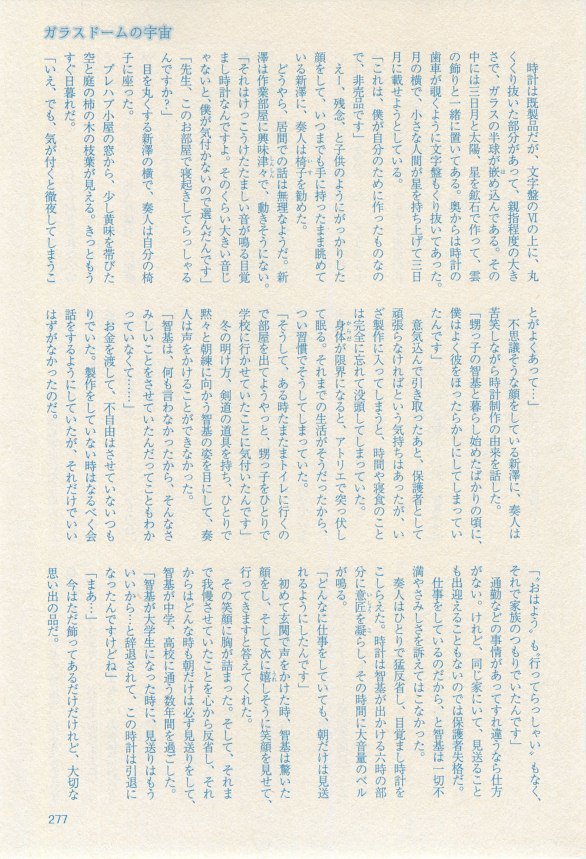 ガラスドームの宇宙
時計は既製品だが、文字盤のⅥの上に、丸
くくり抜いた部分があって、親指程度の大き
さで、ガラスの半球が嵌め込んである。その
中には三日月と太陽、星を鉱石で作って、雲
の飾りと一緒に置いてある。奥からは時計の
歯車が覗くように文字盤もくり抜いてあった。
月の横で、小さな人間が星を持ち上げて三日
月に載せようとしている。
「これは、僕が自分のために作ったものなの
で、非売品です」
えー、残念、と子供のようにがっかりした
顔をして、いつまでも手に持ったまま眺めて
いる新澤に、奏人は椅子を勧めた。
どうやら、居間での話は無理なようだ。新
澤は作業部屋に興味津々で、動きそうにない。
「それはけっこうけたたましい音が鳴る目覚
まし時計なんですよ。そのくらい大きい音じ
ゃないと、僕が気付かないので選んだんです」
「先生、このお部屋で寝起きしてらっしゃる
んですか?」
目を丸くする新澤の横で、奏人は自分の椅
子に座った。
プレハブ小屋の窓から、少し黄味を帯びた
空と庭の柿の木の枝葉が見える。きっともう
すぐ日暮れだ。
「いえ、でも、気が付くと徹夜してしまうこ
とがよくあって…」
不思議そうな顔をしている新澤に、奏人は
苦笑しながら時計制作の由来を話した。
「甥っ子の智基と暮らし始めたばかりの頃に、
僕はよく彼をほったらかしにしてしまってい
たんです」
意気込んで引き取ったあと、保護者として
頑張らなければという気持ちはあったが、い
ざ製作に入ってしまうと、時間や寝食のこと
は完全に忘れて没頭してしまっていた。
身体が限界になると、アトリエで突っ伏し
て眠る。それまでの生活がそうだったから、
つい習慣でそうしてしまっていた。
「そうして、ある時たまたまトイレに行くの
で部屋を出てようやっと、甥っ子をひとりで
学校に行かせていたことに気付いたんです」
冬の明け方、剣道の道具を持ち、ひとりで
黙々と朝練に向かう智基の姿を目にして、奏
人は声をかけることができなかった。
「智基は、何も言わなかったから、そんなさ
みしいことをさせていたんだってこともわか
っていなくて……」
お金を渡して、不自由はさせていないつも
りでいた。製作をしていない時はなるべく会
話をするようにしていたが、それだけでいい
はずがなかったのだ。
「〝おはよう〟も〝行ってらっしゃい〟もなく、
それで家族のつもりでいたんです」
通勤などの事情があってすれ違うなら仕方
がない。けれど、同じ家にいて、見送ること
も出迎えることもないのでは保護者失格だ。
仕事をしているのだから、と智基は一切不
満やさみしさを訴えてはこなかった。
奏人はひとりで猛反省し、目覚まし時計を
こしらえた。時計は智基が出かける六時の部
分に意匠を凝らし、その時間に大音量のベル
が鳴る。
「どんなに仕事をしていても、朝だけは見送
れるようにしたんです」
初めて玄関で声をかけた時、智基は驚いた
顔をし、そして次に嬉しそうに笑顔を見せて、
行ってきますと答えてくれた。
その笑顔に胸が詰まった。そして、それま
で我慢させていたことを心から反省し、それ
からはどんな時も朝だけは必ず見送りをして、
智基が中学、高校に通う数年間を過ごした。
「智基が大学生になった時に、見送りはもう
いいから…と辞退されて、この時計は引退に
なったんですけどね」
「まあ…」
今はただ飾ってあるだけだけれど、大切な
思い出の品だ。
277